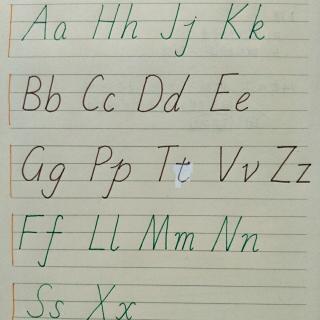 Aa Hh Jj Kk
Bb Cc Dd Ee
Gg Pp Tt Vv Zz
Ff Ll Mm Nn
Ss Xx